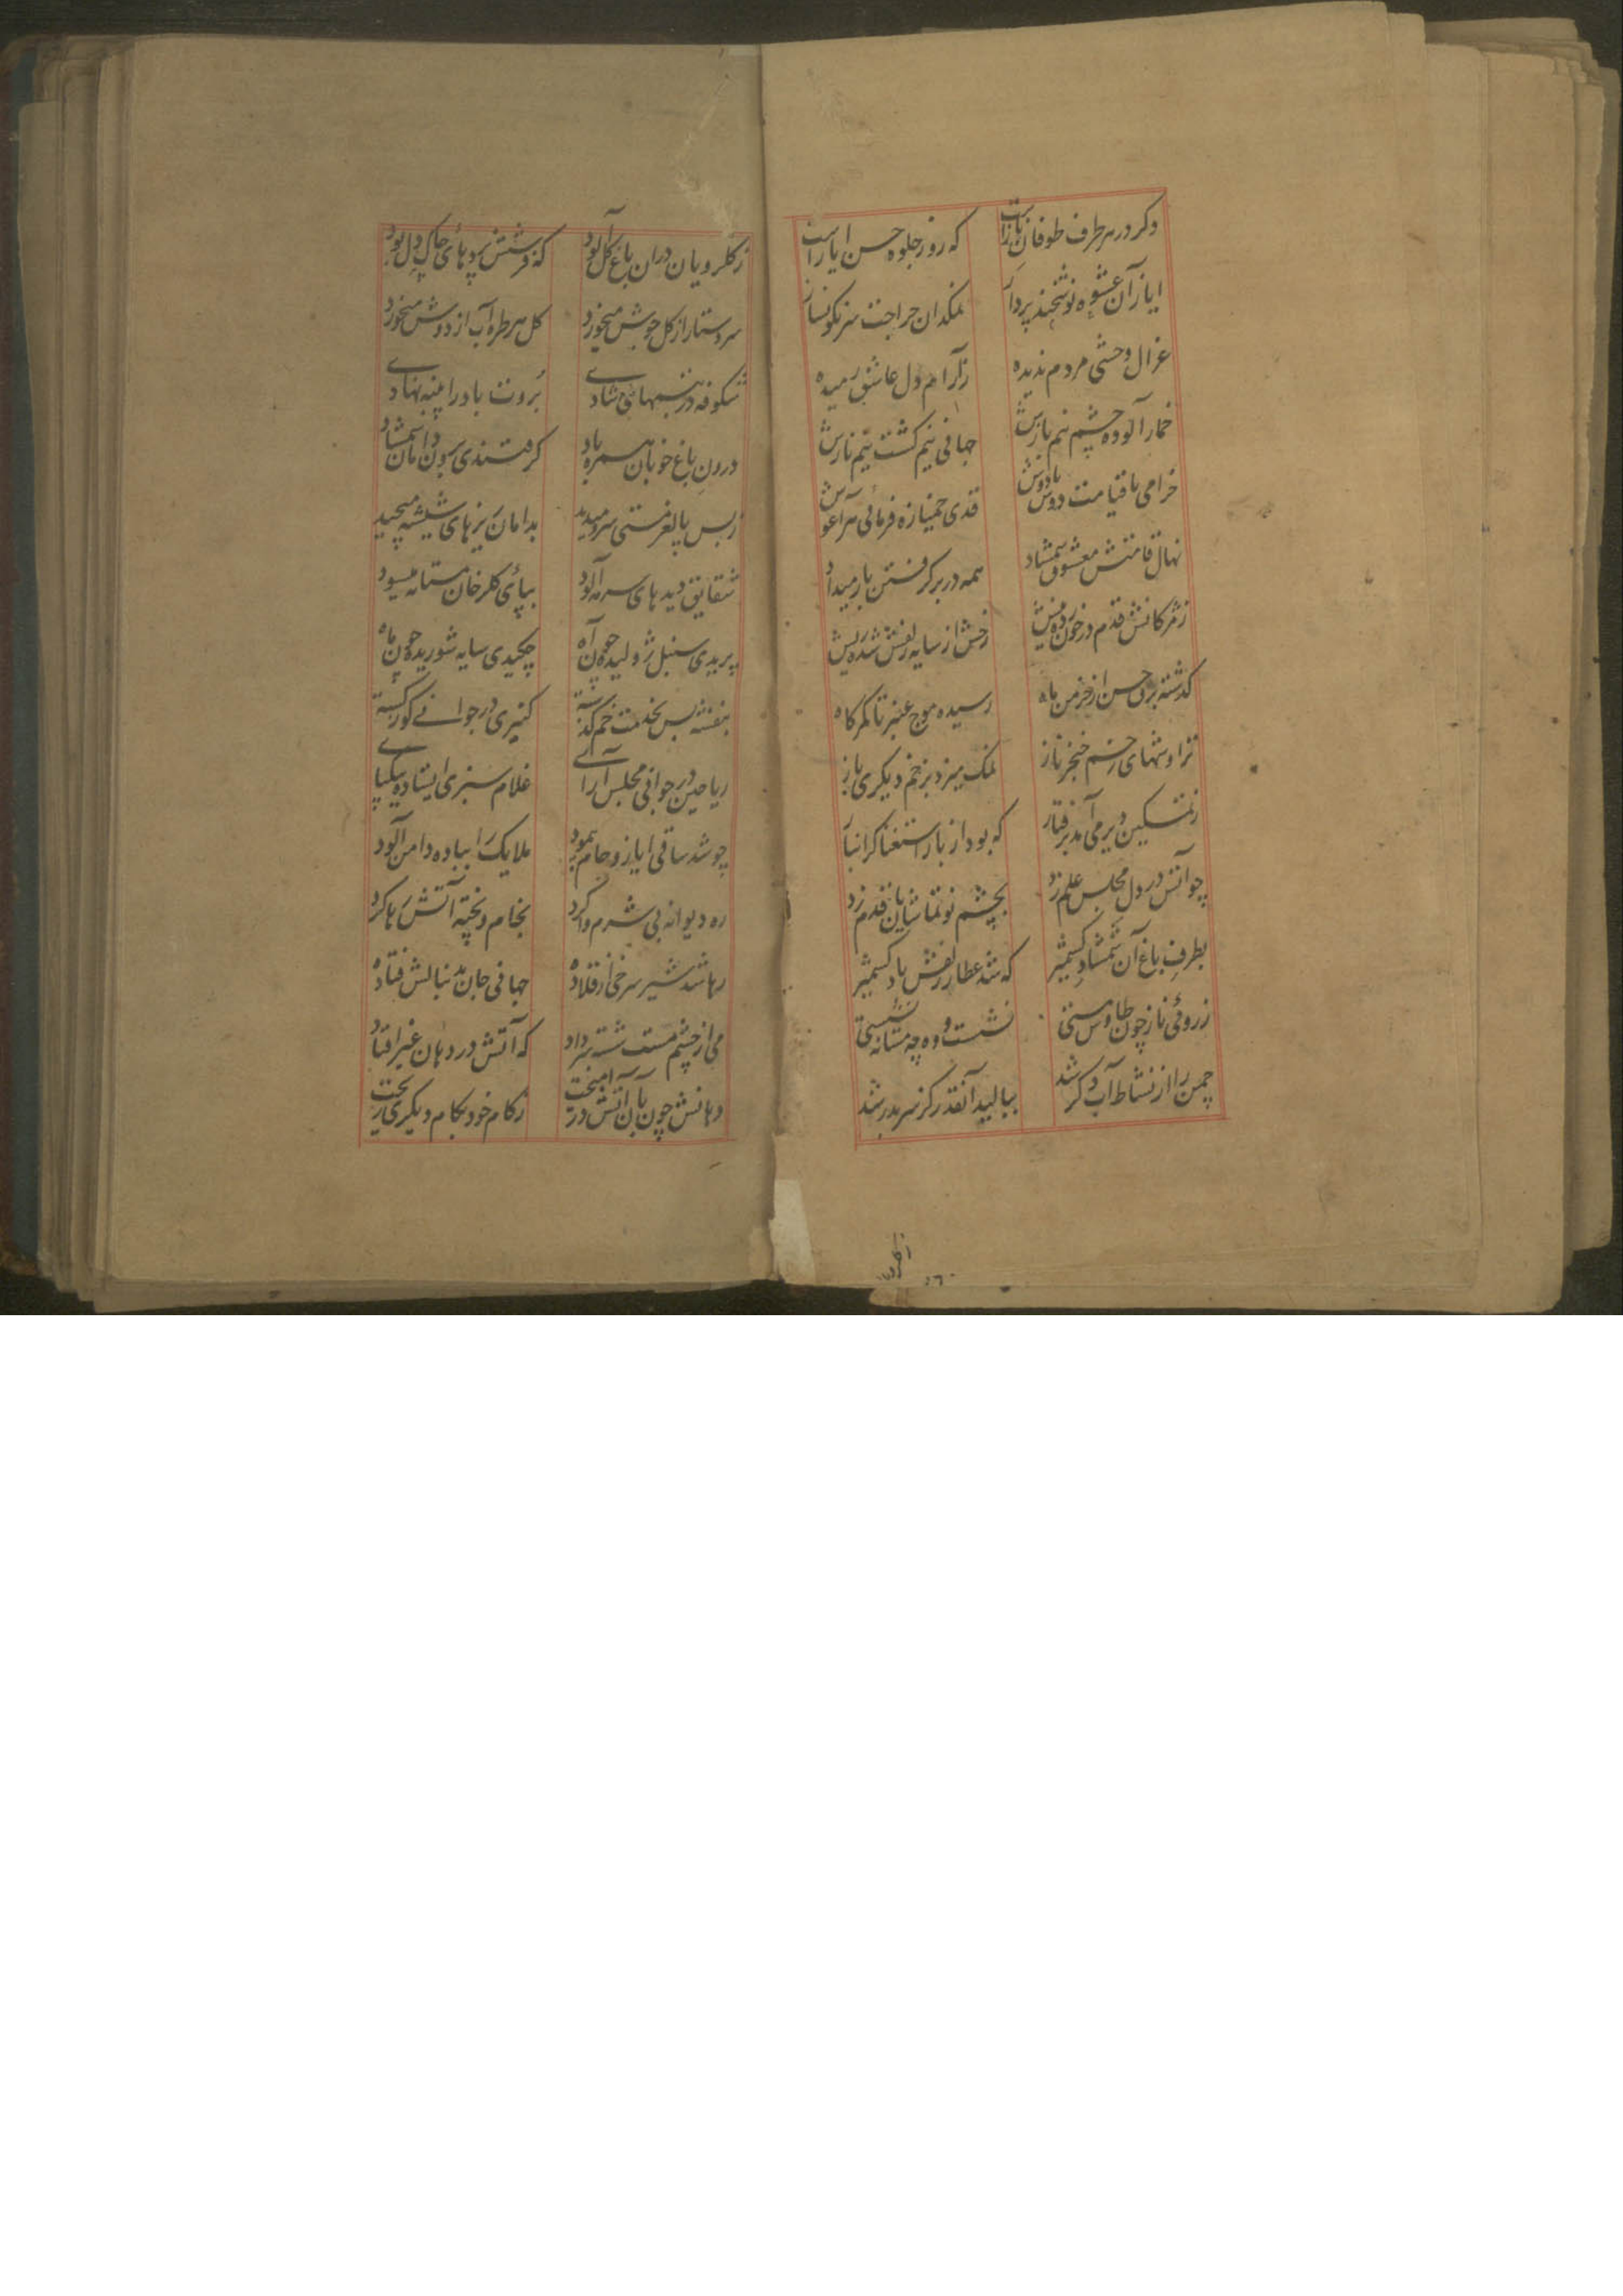 دکر در هر طرف طوفان نازاست
که روز جلوه حسن ایازاست
ایاز آن عشوه نوشخند پرداز
نمکدان جراحت سرنکونساز
غزال وحشی مردم ندیده
ز آرام دل عاشق رمیده
خمار آلوده چشم نیم بازش
جهانی نیم کشت نیم نازش
خرامی با قیامت دوش بادوش
قدی خمیازه فرمائی هر آغوش
نهال قامتش معشوق شمشاد
همه در بر کرفتن بار میداد
ز مژکانش قدم در خون
رخش از سایه زلفش شده ریش
کذشته برق حسن از خرمن ماه
رسیده موج عنبر تا کمرکاه
تراوشهای زخم خنجر ناز
نمک میزد بزخم دیکری باز
ز تمکین دیر می آمد برفتار
که بود از بار استغنا کرانبار
چو آتش در دل مجلس علم زد
بچشم نو تماشایان قدم زد
بطرف باغ آن شمشاد کشمیر
که شد عطار زلفش باد کشمیر
ز روئی ناز چون طاوس مستی
نشست و وه چه مستانه نشستی
چمن را از نشاط آب دکر شد
ببالید آنقدر کز سر بدر شد
ز کلرویان دران باغ کل آلود
که فرشش پردهای چاک دل بود
سر دستار از کل جوش میخورد
کل هر طره آب از دوش میخورد
شکوفه در تبسمهای شادی
بروت باد را پنبه نهادی
درون باغ خوبان همره باد
کرفتندی سر و دامان شمشاد
ز بس پا لغز مستی سرو میدید
بدامان ریزهای شیشه میچید
شقایق دیدهای سرمه آلود
بپائی کلرخان مستانه میسود
پریدی سنبل ژولیده چون آه
چکیدی سایه شوریده چون ماه
بنفشه بس بخدمت خم کذشته
کنیزی در جوانی کوژ کشته
ریاحین در جوانی مجلس آرای
غلام سبزی ایستاده بیکپای
چو شد ساقی ایاز و جام پیمود
ملایک را بباده دامن آلود
ره دیوانه بی شرم وا کرد
بخام و پخته آتش رها کرد
رها شد شیر سرخی از قلاده
جهانی جان بدنبالش فتاده
می از چشم مست شسته سر داد
که آتش در دهان غیر افتاد
دهانش چون بآن آتش درآمیخت
ز کام خود بکام دیکری ریخت